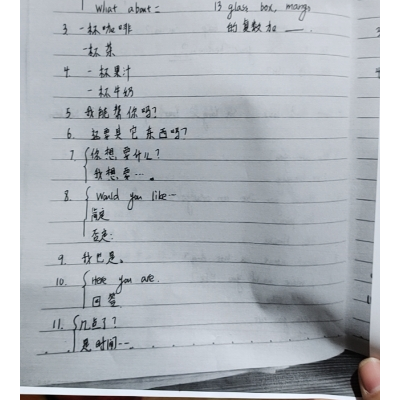 What about =
13. glass box, mango
的复数加 ——.
3. 一杯咖啡
一杯茶
4. 一杯果汁
一杯牛奶
5. 我能帮你吗?
6. 还要其它东西吗?
7. 你想要什么?
我想要…。
8. Would you like…
肯定
否定:
9. 我也是。
10. Here you are.
回答
11. 几点了?
是时间…